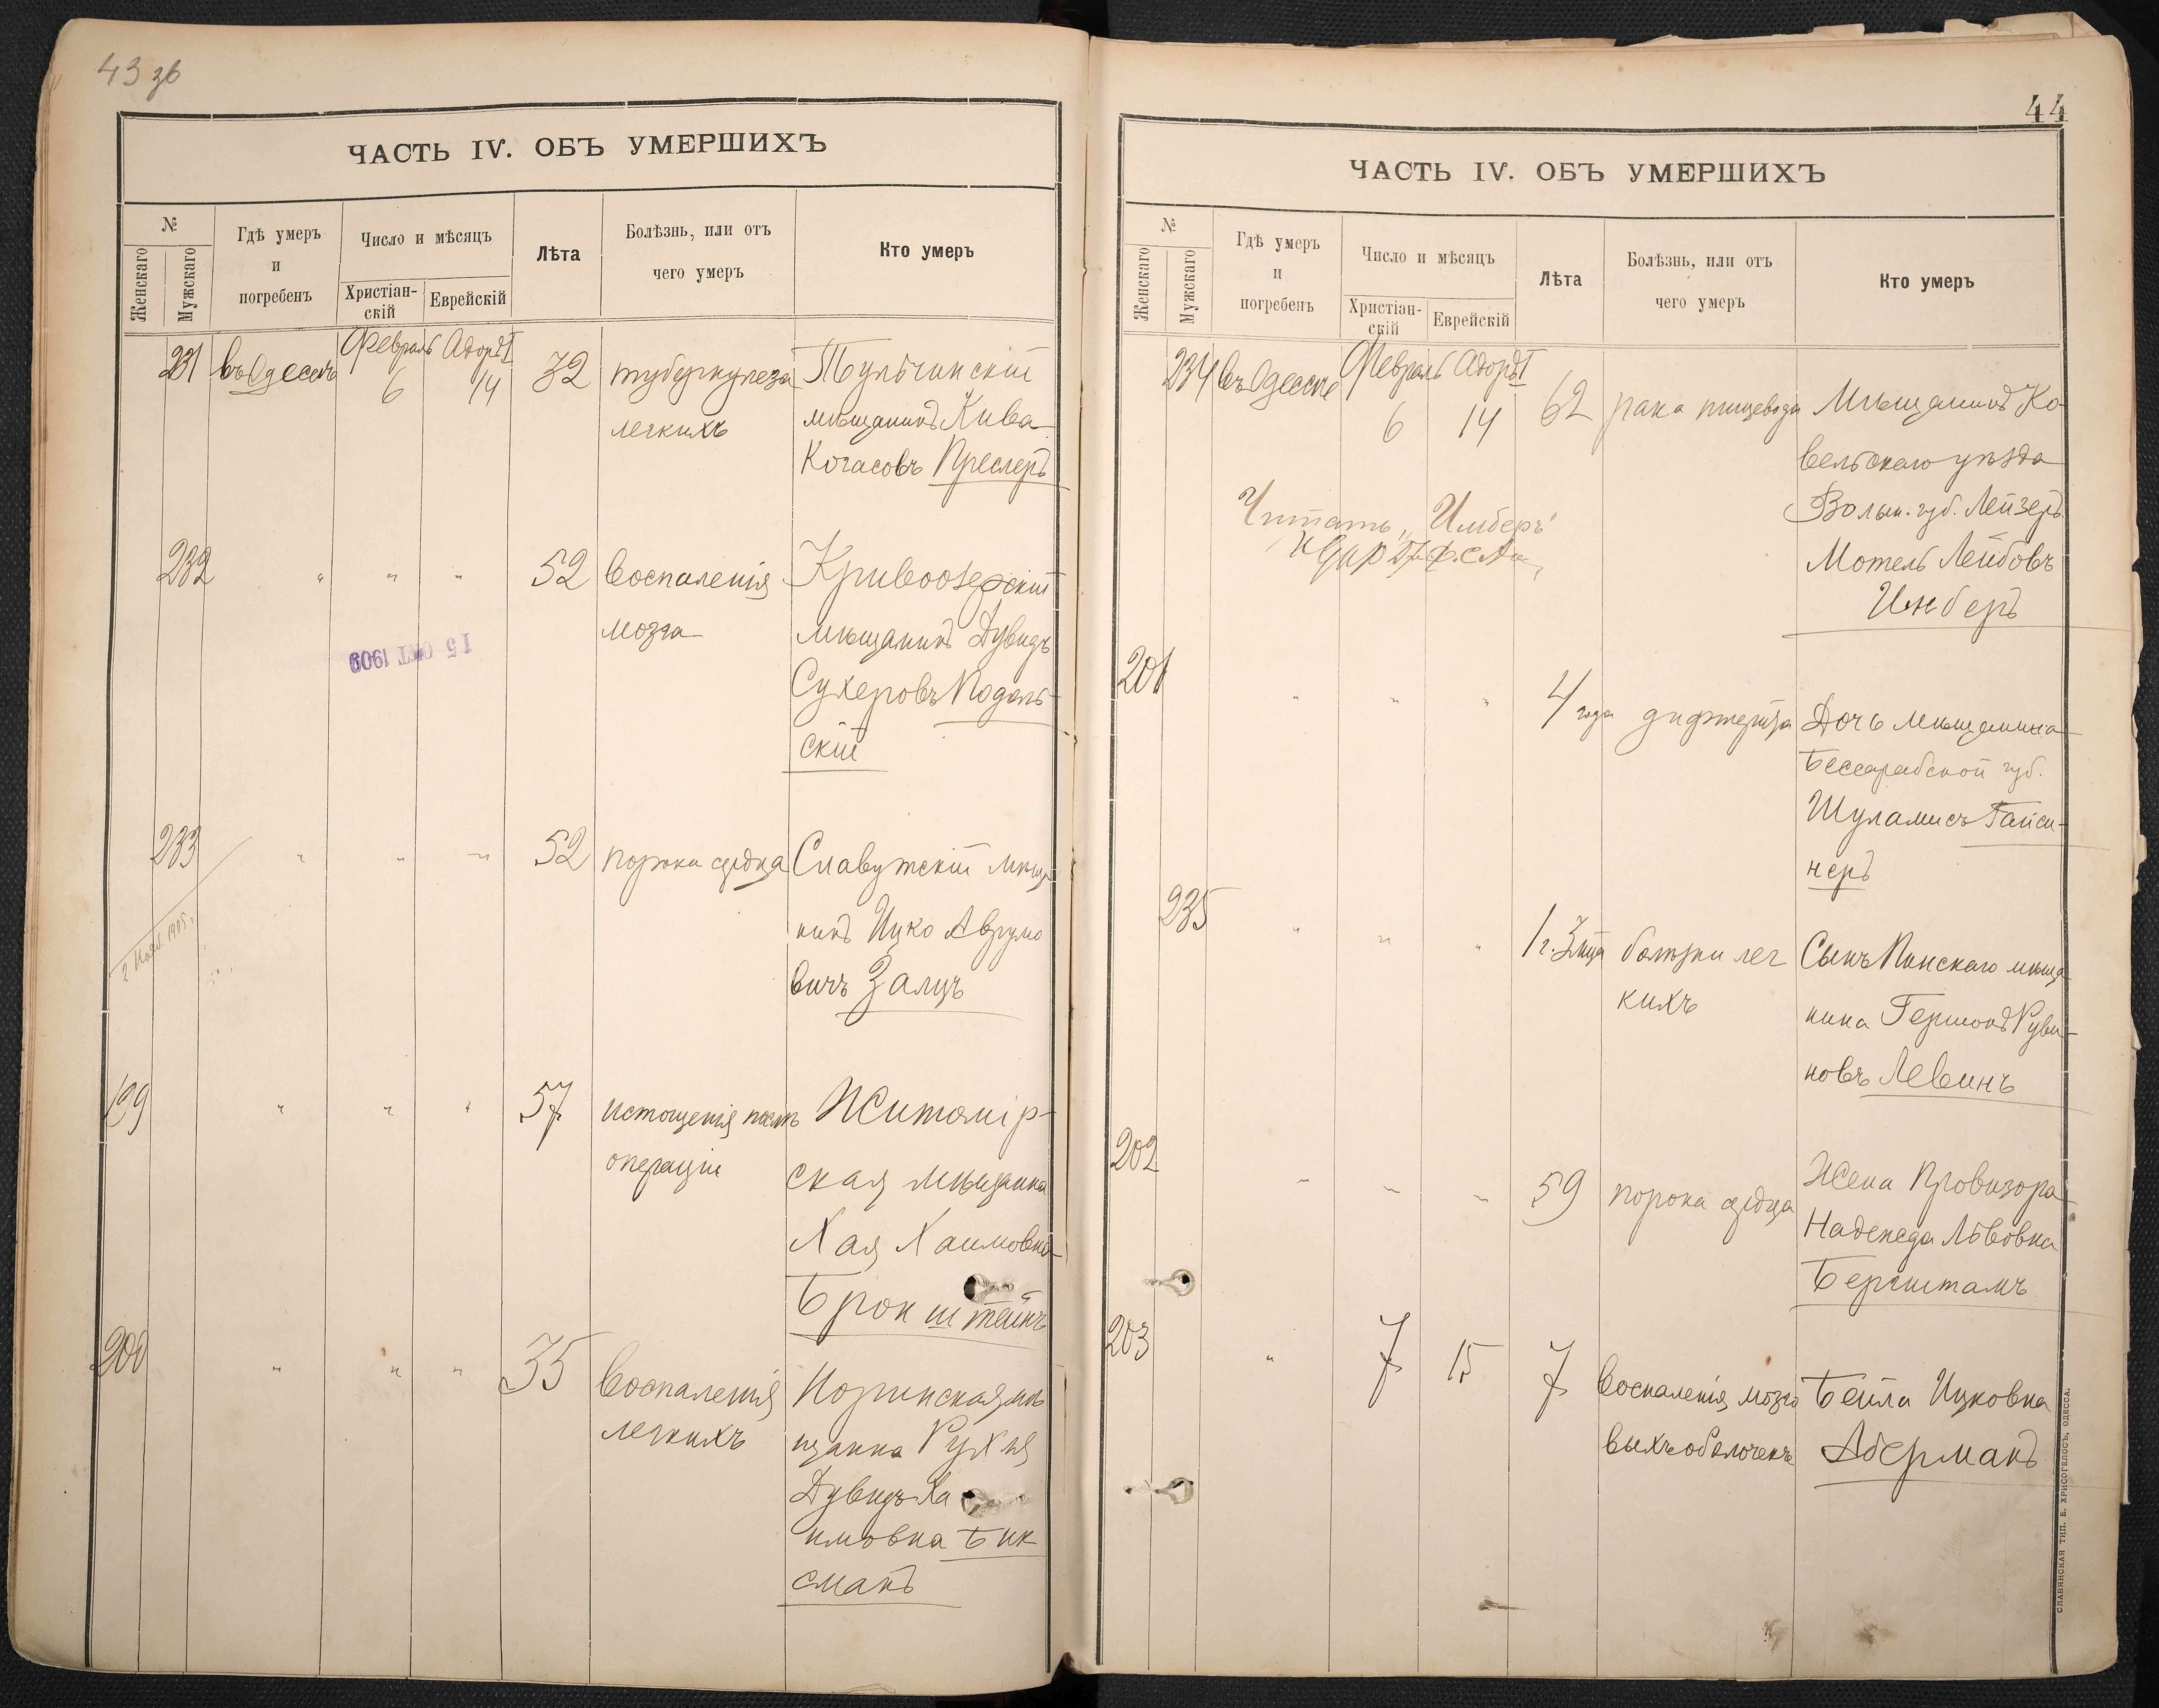 43 зв
ЧАСТЬ IV. ОБЪ УМЕРШИХЪ
№
Женскаго
Мужскаго
Гдѣ умеръ
и
погребенъ
Число и мѣсяцъ
Христіан-
скій
Еврейскій
Лѣта
Болѣзнь, или отъ
чего умеръ
Кто умеръ
231 въ Одессѣ Февраль 6 Адоръ I 14 32 туберкулеза Тульчинскій
легкихъ мѣщанинъ Кива
Когасовъ Преслеръ
232 " " " 52 Воспаленія Кривоозерскій
мозга мѣщанинъ Дувидъ
Сухеровъ Подоль-
скій
15 ОКТ 1909
233 " " " 52 порока сердца Славутскій мѣща
нинъ Ицко Аврумо
вичъ Залцъ
2 Нояб. 1905.
199 " " " 57 истощенія послѣ Житомір-
операціи ская мѣщанка
Хая Хаимовна
Бронштейнъ
200 " " " 35 Воспаленія мѣ
легкихъ щанка Рухля
Дувидъ Ха
имовна Бик
сманъ
44
ЧАСТЬ IV. ОБЪ УМЕРШИХЪ
№
Женскаго
Мужскаго
Гдѣ умеръ
и
погребенъ
Число и мѣсяцъ
Христіан-
скій
Еврейскій
Лѣта
Болѣзнь, или отъ
чего умеръ
Кто умеръ
234 въ Одессѣ Февраль 6 Адоръ I 14 62 рака пищевода Мѣщанинъ Ко-
вельскаго уѣзда
Волын. губ. Лейзеръ
Мотель Лейбовъ
Инберъ
Читать „Имберъ"
201 " " " 4 года дифтерита Дочь мѣщанина
Бессарабской губ.
Шуламисъ Гайси-
неръ
235 " " " 1 г. 3 мца болѣзни лег Сынъ Пинскаго мѣща-
кихъ нина Гершонъ Руви-
новъ Левинъ
202 " " " 59 порока сердца Жена Провизора
Надежда Львовна
Бергштамъ
203 " 7 15 7 Воспаленія мозго Бейла Ицковна
выхъ оболочекъ Аберманъ
СЛАВЯНСКАЯ ТИП. Е. ХРИСОГЕЛОСЪ, ОДЕССА.